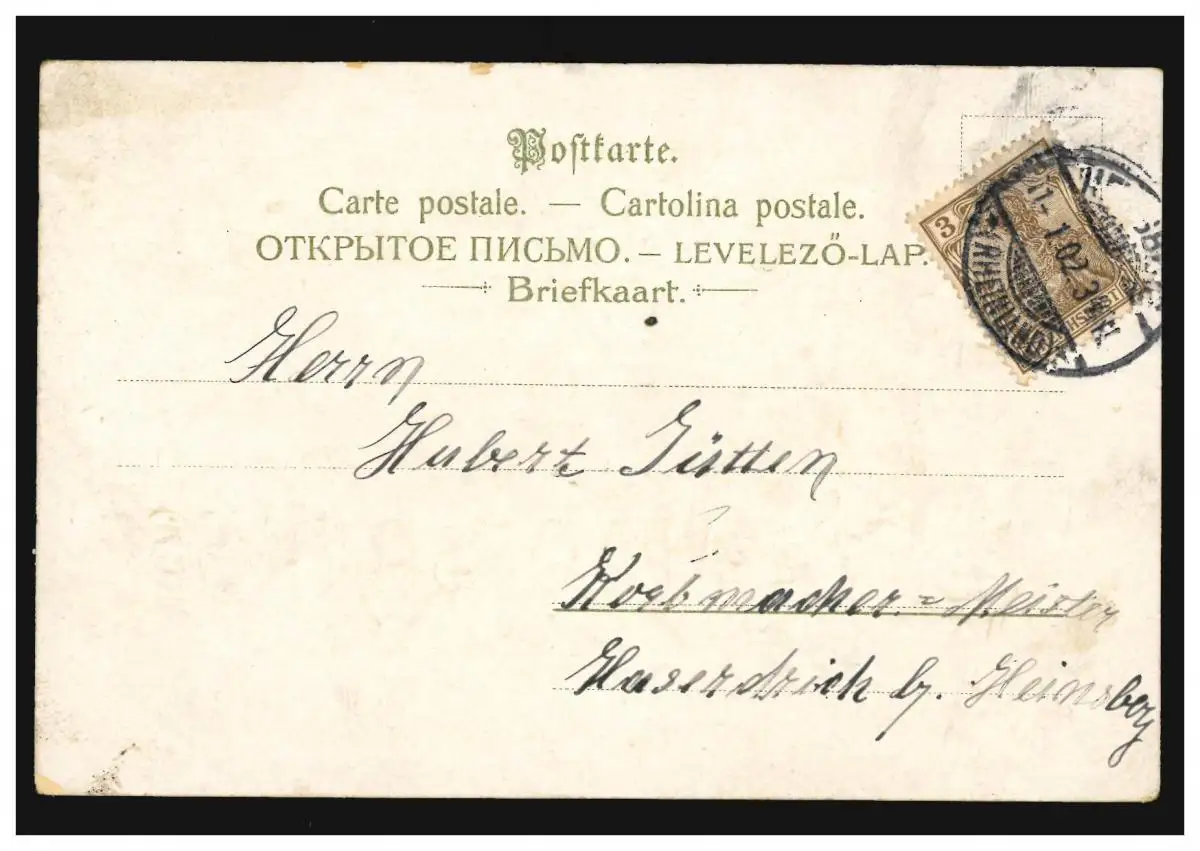 Postkarte.
Carte postale. — Cartolina postale.
ОТКРЫТОЕ ПИСЬМО. — LEVELEZŐ-LAP.
Briefkaart.
3
1.02.3
(RHEINLAND)
Herrn
Hubert Jütten
Korbmacher = Meister
Haserdrich b. Heinsberg